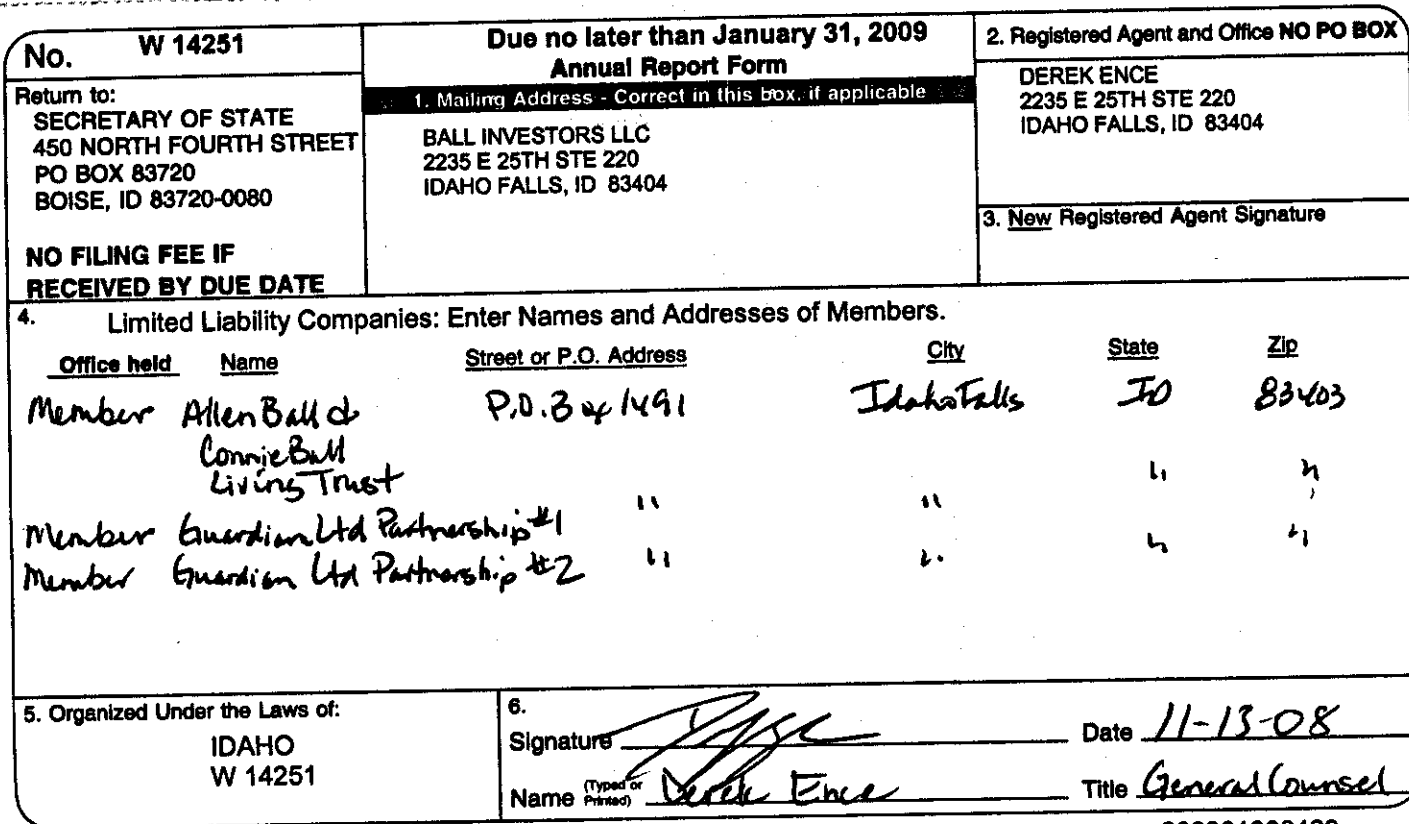 No. W 14251
Return to:
SECRETARY OF STATE
450 NORTH FOURTH STREET
PO BOX 83720
BOISE, ID 83720-0080
NO FILING FEE IF
RECEIVED BY DUE DATE
Due no later than January 31, 2009
Annual Report Form
1. Mailing Address - Correct in this box, if applicable
BALL INVESTORS LLC
2235 E 25TH STE 220
IDAHO FALLS, ID 83404
2. Registered Agent and Office NO PO BOX
DEREK ENCE
2235 E 25TH STE 220
IDAHO FALLS, ID 83404
3. New Registered Agent Signature
4. Limited Liability Companies: Enter Names and Addresses of Members.
Office held Name Street or P.O. Address City State Zip
Member Allen Ball & P.O. Box 1491 Idaho Falls ID 83403
Connie Ball
Living Trust
Member Guardian Ltd Partnership #1 " " " "
Member Guardian Ltd Partnership #2 " " " "
5. Organized Under the Laws of:
IDAHO
W 14251
6.
Signature Date 11-13-08
Name (Typed or Printed) Derek Ence Title General Counsel